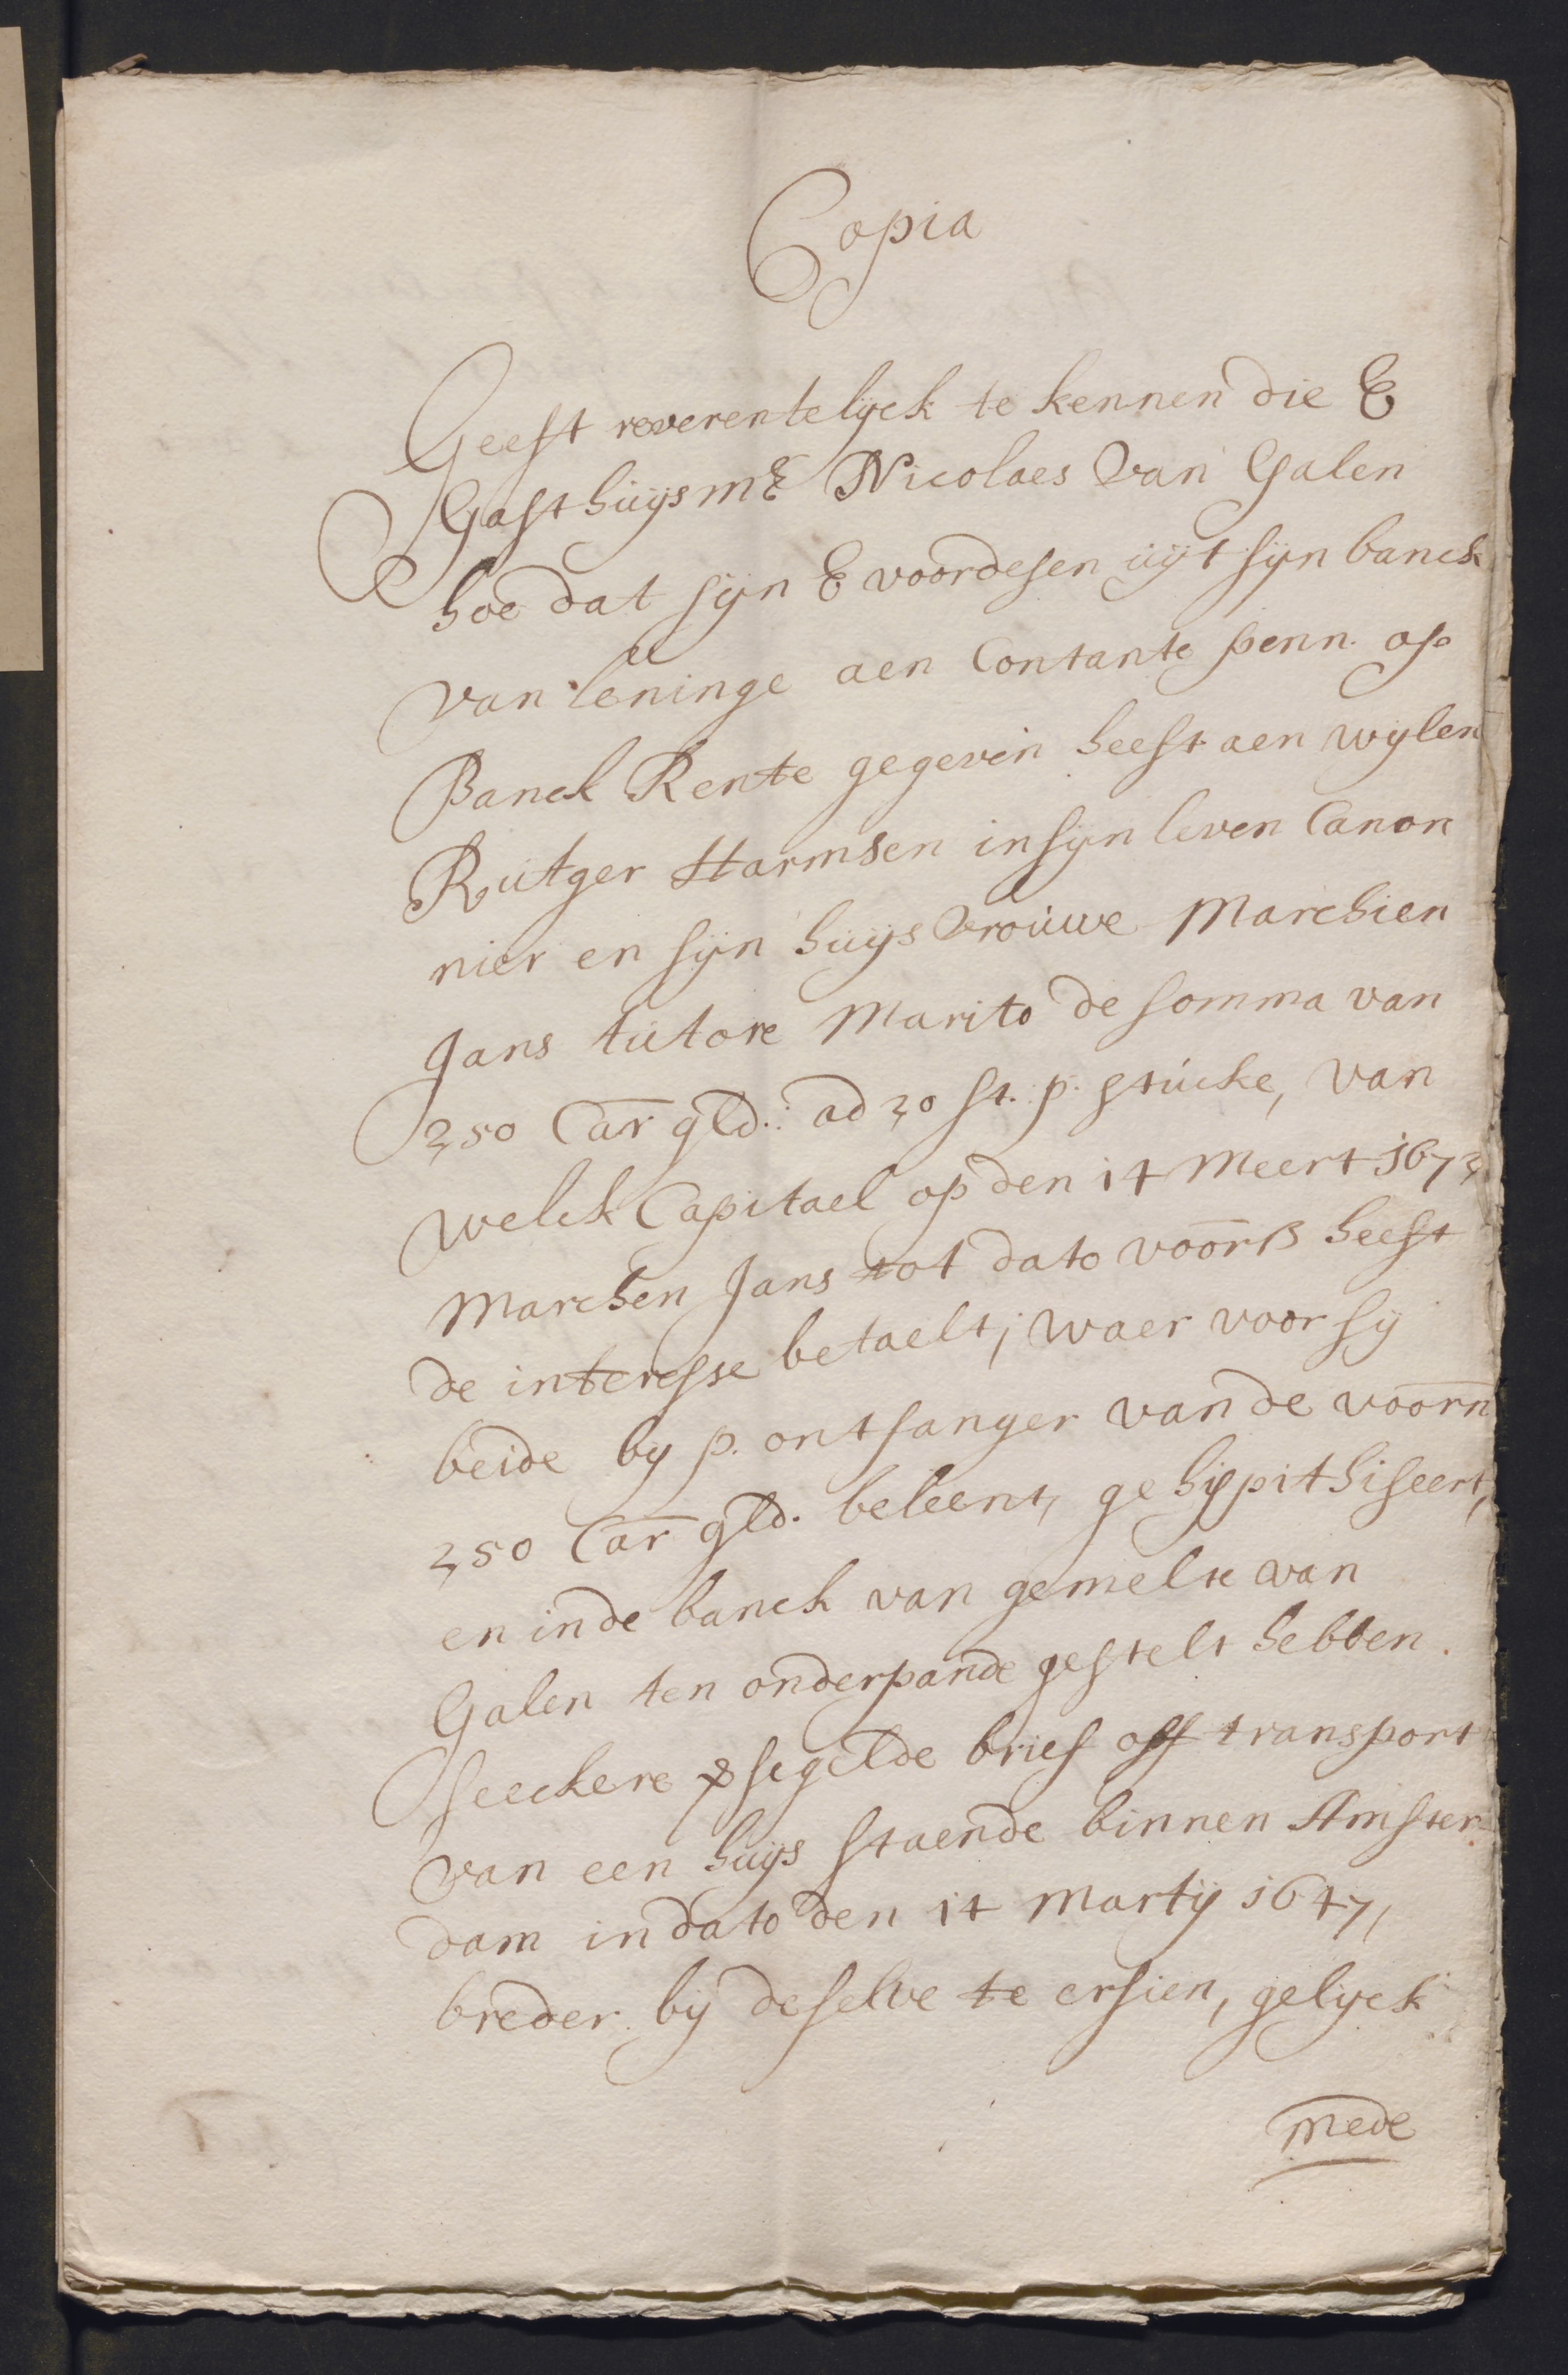 Copia
Geeft reverentelijck te kennen die E
Gasthuijsmr Nicolaes van Galen
hoe dat sijn E voordesen uijt sijn banck
van leninge aen Contante penn. op
Banck Rente gegeven heeft aen wijlen
Rutger Harmsen in sijn leven Canon
nier en sijn huijsvrouwe Marchien
Jans tutore Marito de somma van
250 Car gld: ad 20 st. p. stucke, van
welck Capitael op den 14 Meert 1672
Marchen Jans tot dato voorß heeft
de interesse betaelt; waer voor sij
beide bij p. ontfanger van de voorn
250 Car gld. beleent, gehijpithiseert,
en in de banck van gemelte van
Galen ten onderpande gestelt hebben
seeckere segelde brief off transport
van een huijs staende binnen Amster
dam in dato den 14 Martij 1647,
breder bij deselve te ersien, gelijck
mede